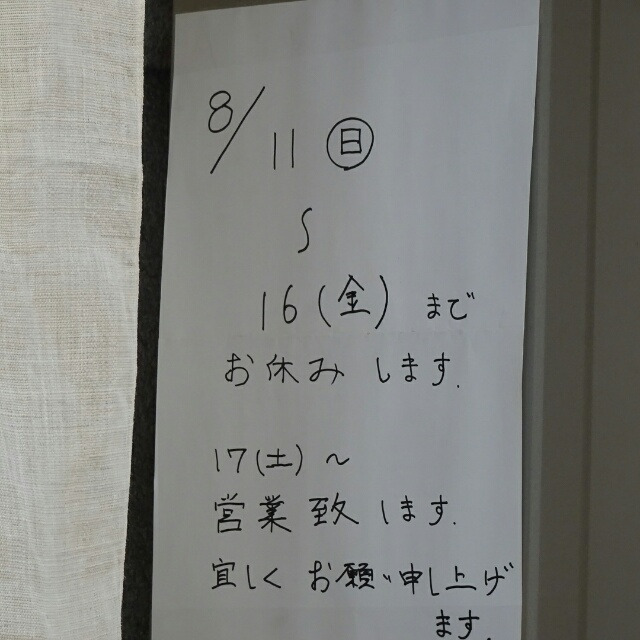 8/11 ㊐
〜
16(金) まで
お休みします.
17(土)〜
営業致します.
宜しくお願い申し上げ
ます.